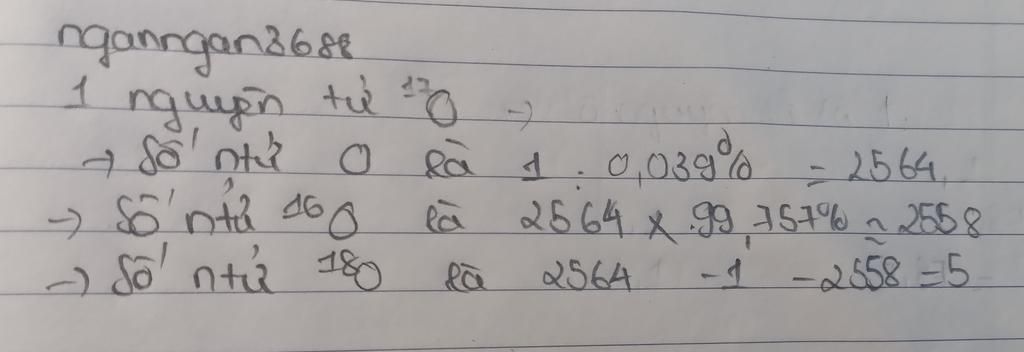 nganngan3688
1 nguyên tử ¹⁷O →
→ Số ntử O là 1 : 0,039% = 2564
→ Số ntử ¹⁶O là 2564 x 99,757% ≈ 2558
→ Số ntử ¹⁸O là 2564 - 1 - 2558 = 5